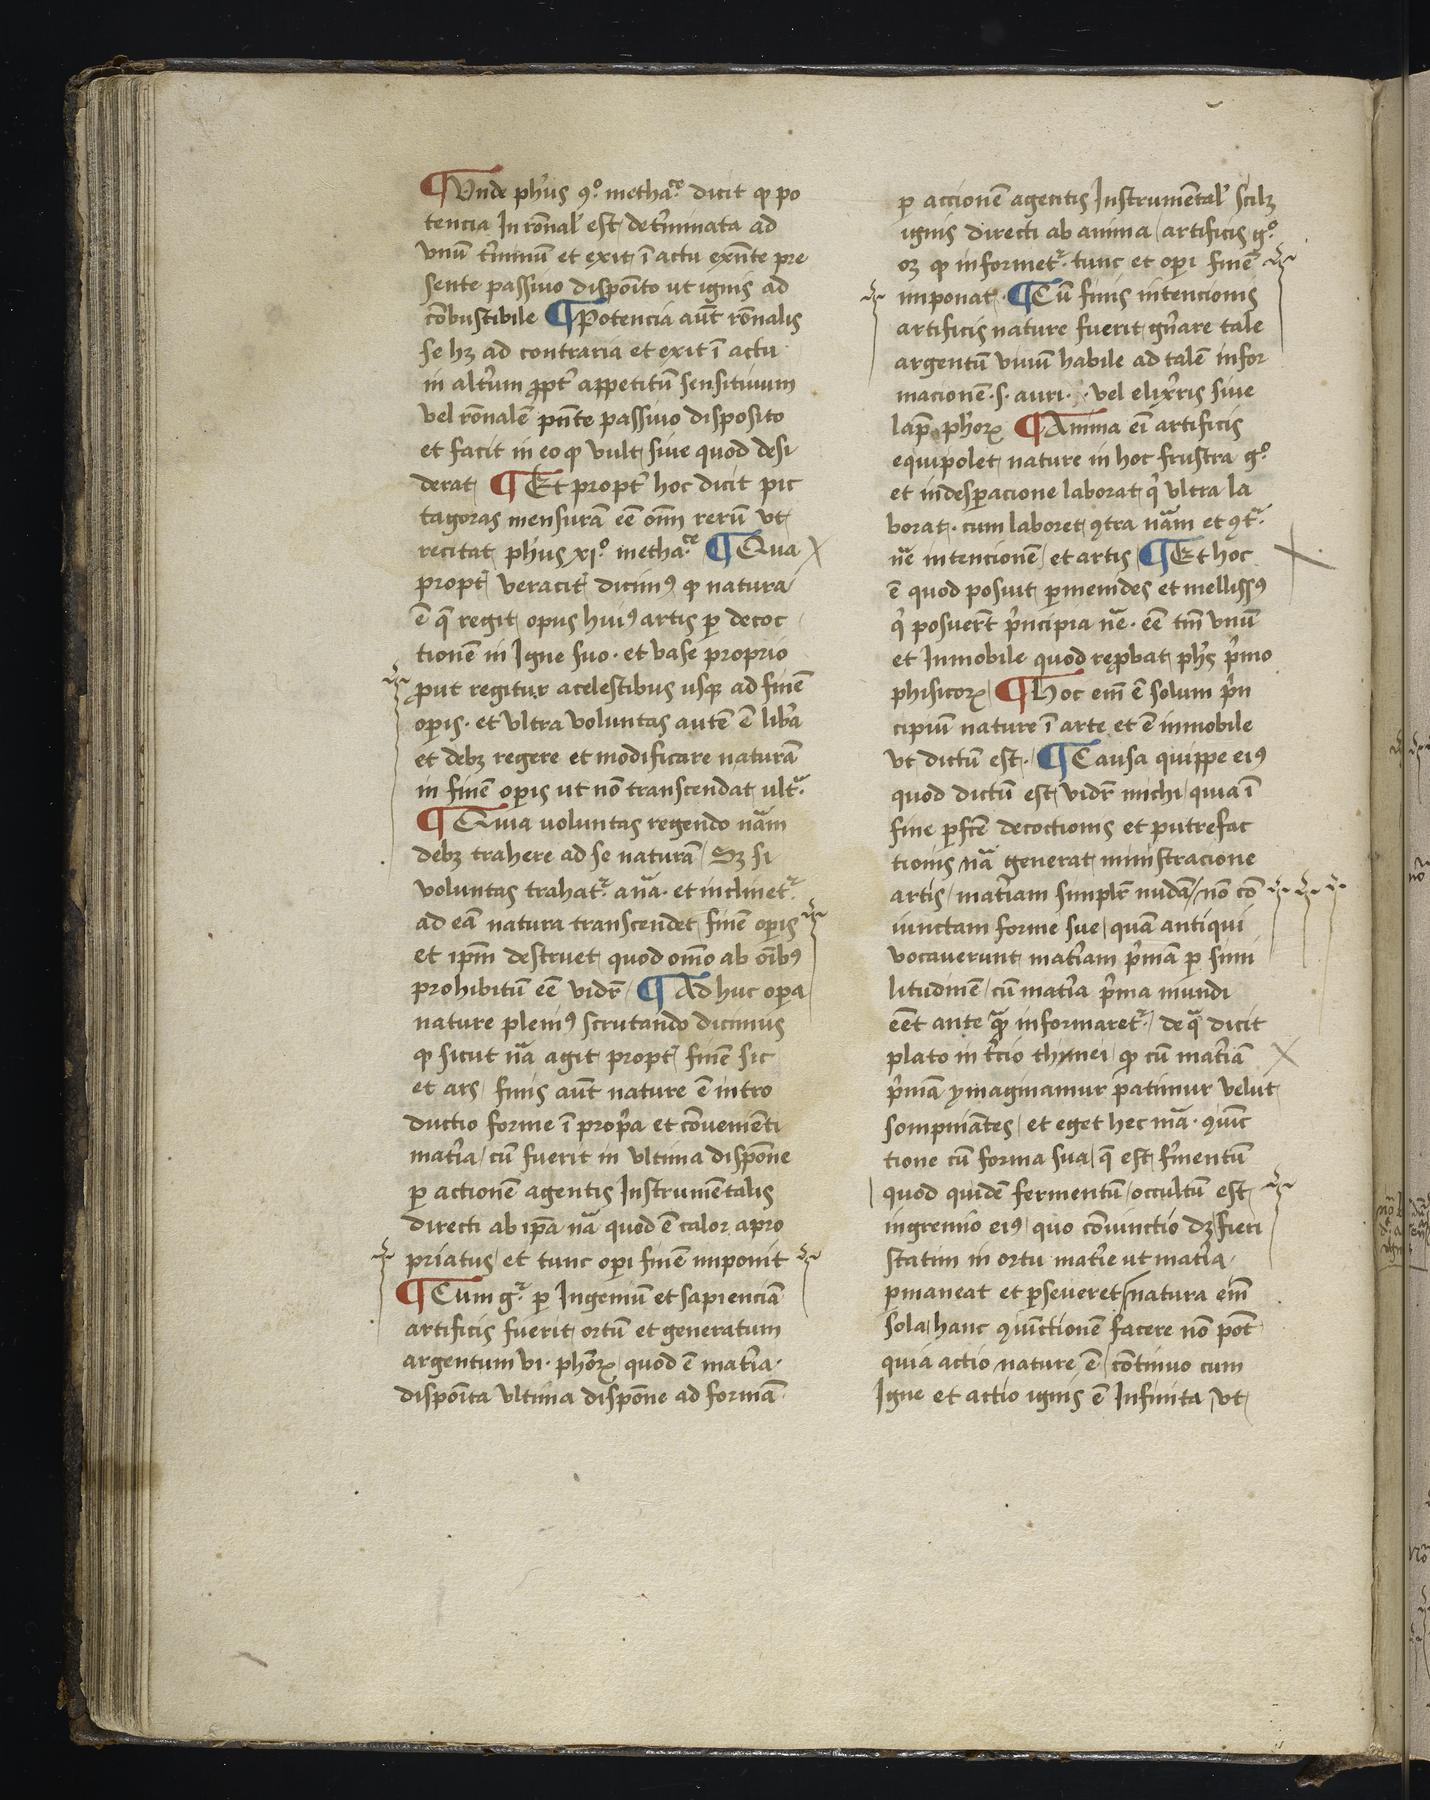 ¶ Unde ph̄us 9.º metha.ce dicit qꝫ po
tencia In rōnal' est det'minata ad
vnū t'minū et exit ī actu exn̄te pre
sente passiuo dispoīto ut ignis ad
cōbustibile ¶ Potencia aūt rōnalis
se hꝫ ad contraria et exit ī actu
in alt'um ꝓpt' appetitū sensitiuum
vel rōnalē pn̄te passiuo disposito
et facit in eo qꝫ vult siue quod desi
derat ¶ Et propt' hoc dicit pic
tagoras mensurā eē oīm rerū vt
recitat ph̄us xi.º metha.ce ¶ Qua
propt' veracit' dicimꝰ qꝫ natura
ē q̄ regit opus huiꝰ artis ꝑ decoc
tionē in Igne suo · et vase proprio
ꝓut regitur a celestibus usqꝫ ad finē
oꝑis · et vltra voluntas autē ē lib'a
et debꝫ regere et modificare naturā
in finē oꝑis ut nō transcendat ultª·
¶ Quia uoluntas regendo nām
debꝫ trahere ad se naturā / Sꝫ si
voluntas trahat'. a nā · et inclinet'.
ad eā natura transcendet finē oꝑis
et ip̄m destruet quod oīno ab oībꝰ
prohibitū eē vidr̄ / ¶ Ad huc oꝑa
nature pleniꝰ scrutando dicimus
qꝫ sicut nā agit propt' finē sic
et ars / finis aūt nature ē intro
ductio forme ī prop'a et cōuenienti
mat'ia / cū fuerit in vltima dispōne
ꝑ actionē agentis Instrumētalis
directi ab ip̄a nā quod ē calor apro
priatus / et tunc oꝑi finē imponit
¶ Cum g'. ꝑ Ingeniū et sapienciā
artificis fuerit ortū et generatum
argentum vi · ph̄orꝝ / quod ē mat'ia ·
dispoīta vltima dispōne ad formā
ꝑ accionē agentis Instrumētal' scilꝫ
ignis directi ab anima / artificis g.º
oꝫ qꝫ informet'. tunc et oꝑi finē
imponat · ¶ Cū finis intencionis
artificis nature fuerit gn̄are tale
argentū viuū habile ad talē infor
macionē · s · auri · vel elixiris siue
lap̄ ph̄orꝝ ¶ Anima eī artificis
equipolet nature in hoc frustra g.º
et indesꝑacione laborat q' vltra la
borat · cum laboret 9tra nām et 9tª·
nē intencionē / et artis / ¶ Et hoc
ē quod posuit ꝑmenides et mellissꝰ
q' posuer̄t p'ncipia nē · eē tm̄ vnū
et Inmobile quod reꝓbat ph̄s p'mo
phisicorꝝ / ¶ Hoc em̄ ē solum p'n
cipiū nature ī arte et ē inmobile
vt dictū est · ¶ Causa quippe eiꝰ
quod dictū est vidr̄ michi / quia ī
fine ꝑfc̄e decoctionis et putrefac
tionis nā generat ministracione
artis / mat'iam simplr̄ nudā / nō cō
iunctam forme sue / quā antiqui
vocauerunt mat'iam p'mā ꝑ simi
litudinē / cū mat'ia p'ma mundi
eēt ante q̄ informaret'. / de qª dicit
plato in t'cio thymei / qꝫ cū mat'iā
p'mā ymaginamur patimur velut
sompniātes / et eget hec mā · 9iūc
tione cū forma sua / q̄ est f'mentū
quod quidē fermentū / occultū est
in gremio eiꝰ / quo cōiunctio dꝫ fieri
statim in ortu mat'ie ut mat'ia ·
ꝑmaneat et ꝑseueret / natura em̄
sola / hanc 9iūctionē facere nō pōt
quia actio nature ē / cōtinuo cum
Igne et actio ignis ē Infinita / vt